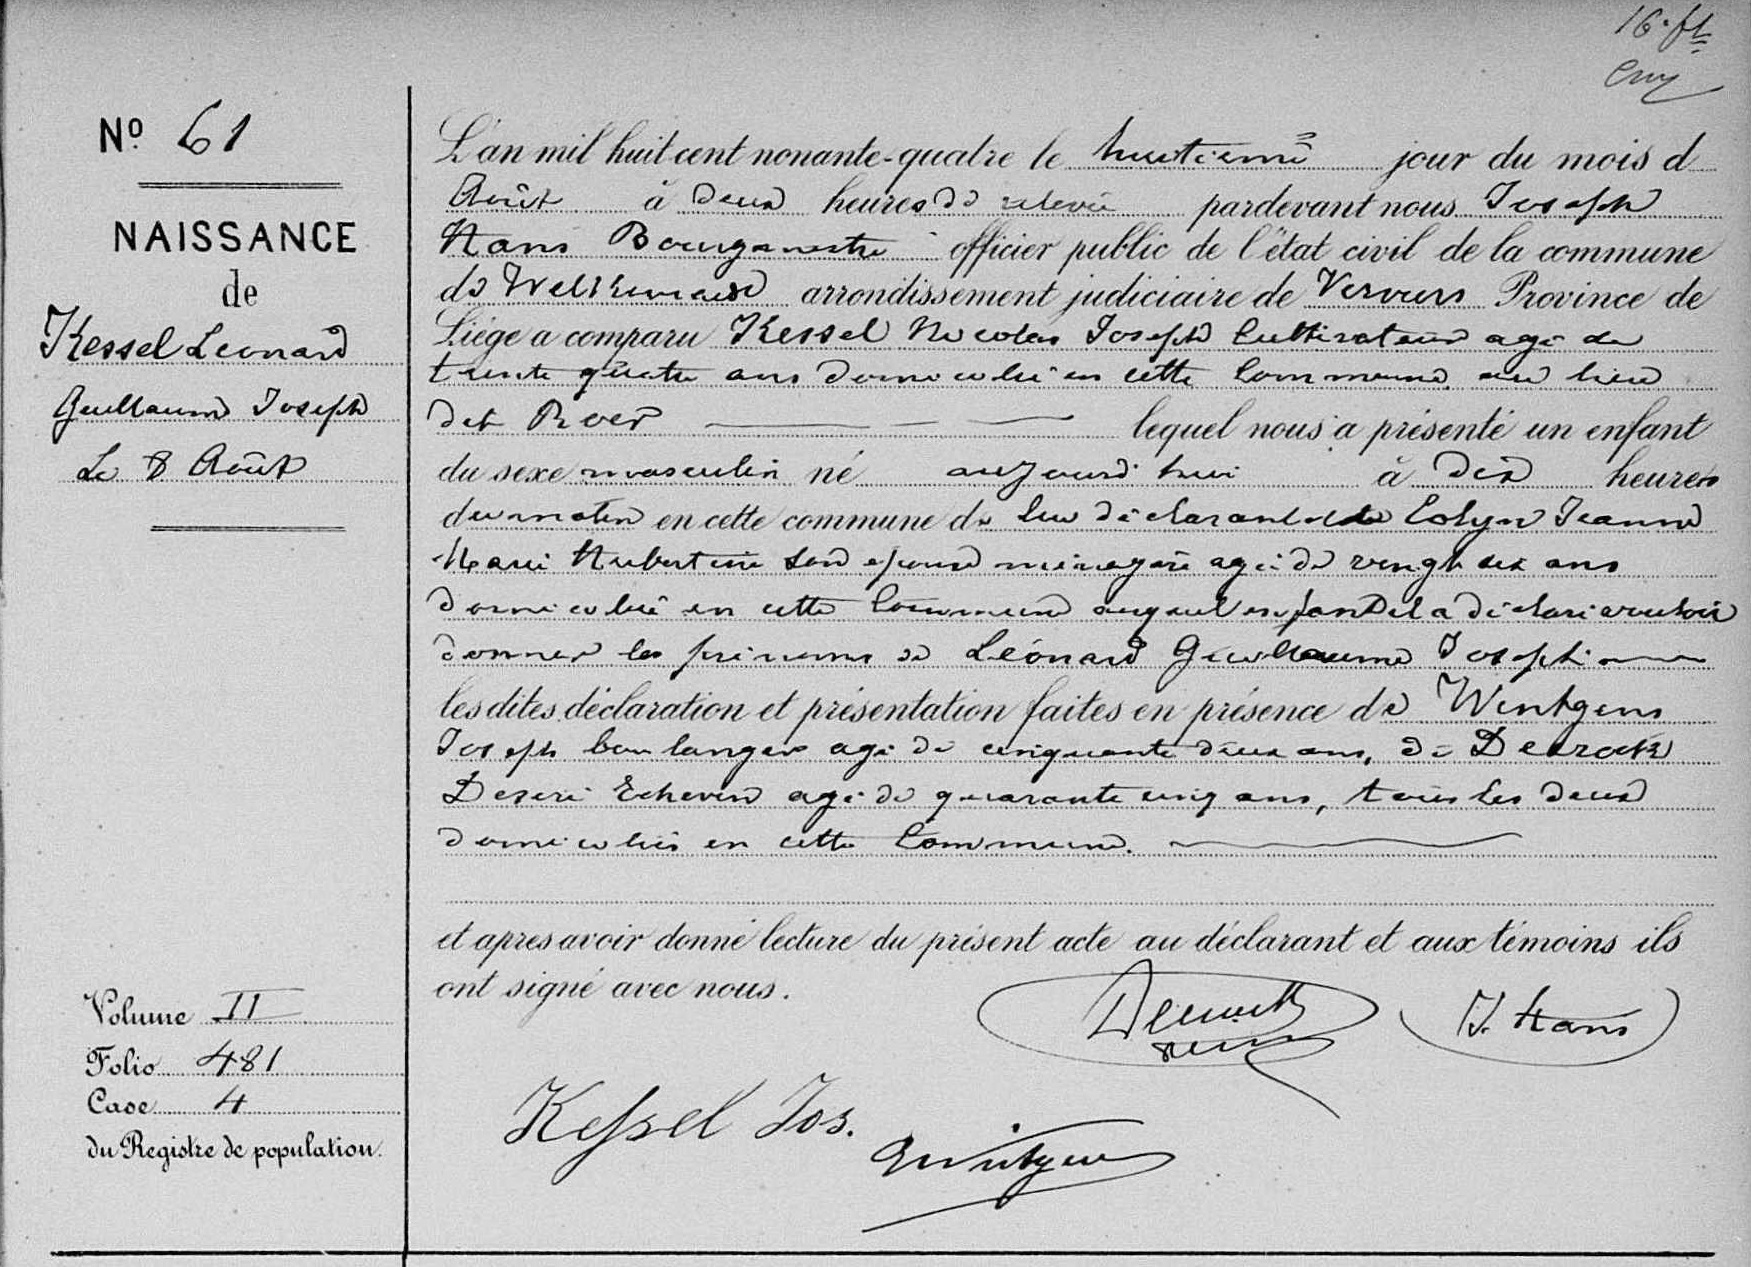 16. ft
Nº 61
NAISSANCE
de
Kessel Leonard
Guillaume Joseph
Le 8 Août
L'an mil huit cent nonante-quatre le huitième jour du mois d
Août à deux heures de relevée pardevant nous Joseph
Hans Bourgmestre officier public de l'état civil de la commune
de Welkenraedt arrondissement judiciaire de Verviers Province de
Liége a comparu Kessel Nicolas Joseph Cultivateur agé de
trente quatre ans domicilié en cette Commune au lieu
dit Roer lequel nous a présenté un enfant
du sexe masculin né aujourd'hui à dix heures
du matin en cette commune de lui déclarant et de Colyn Jeanne
Marie Hubertine son epouse ménagère agée de vingt six ans
domiciliée en cette Commune auquel enfant il a déclaré vouloir
donner les prénoms de Léonard Guillaume Joseph
les dites déclaration et présentation faites en présence de Wintgens
Joseph boulanger agé de cinquante deux ans, de
Desiré Echevin agé de quarante cinq ans, tous les deux
domiciliés en cette Commune.
et après avoir donné lecture du présent acte au déclarant et aux témoins ils
ont signé avec nous.
J. Hans
Kessel Jos.
Wintgens
Volume II
Folio 481
Case 4
du Registre de population.